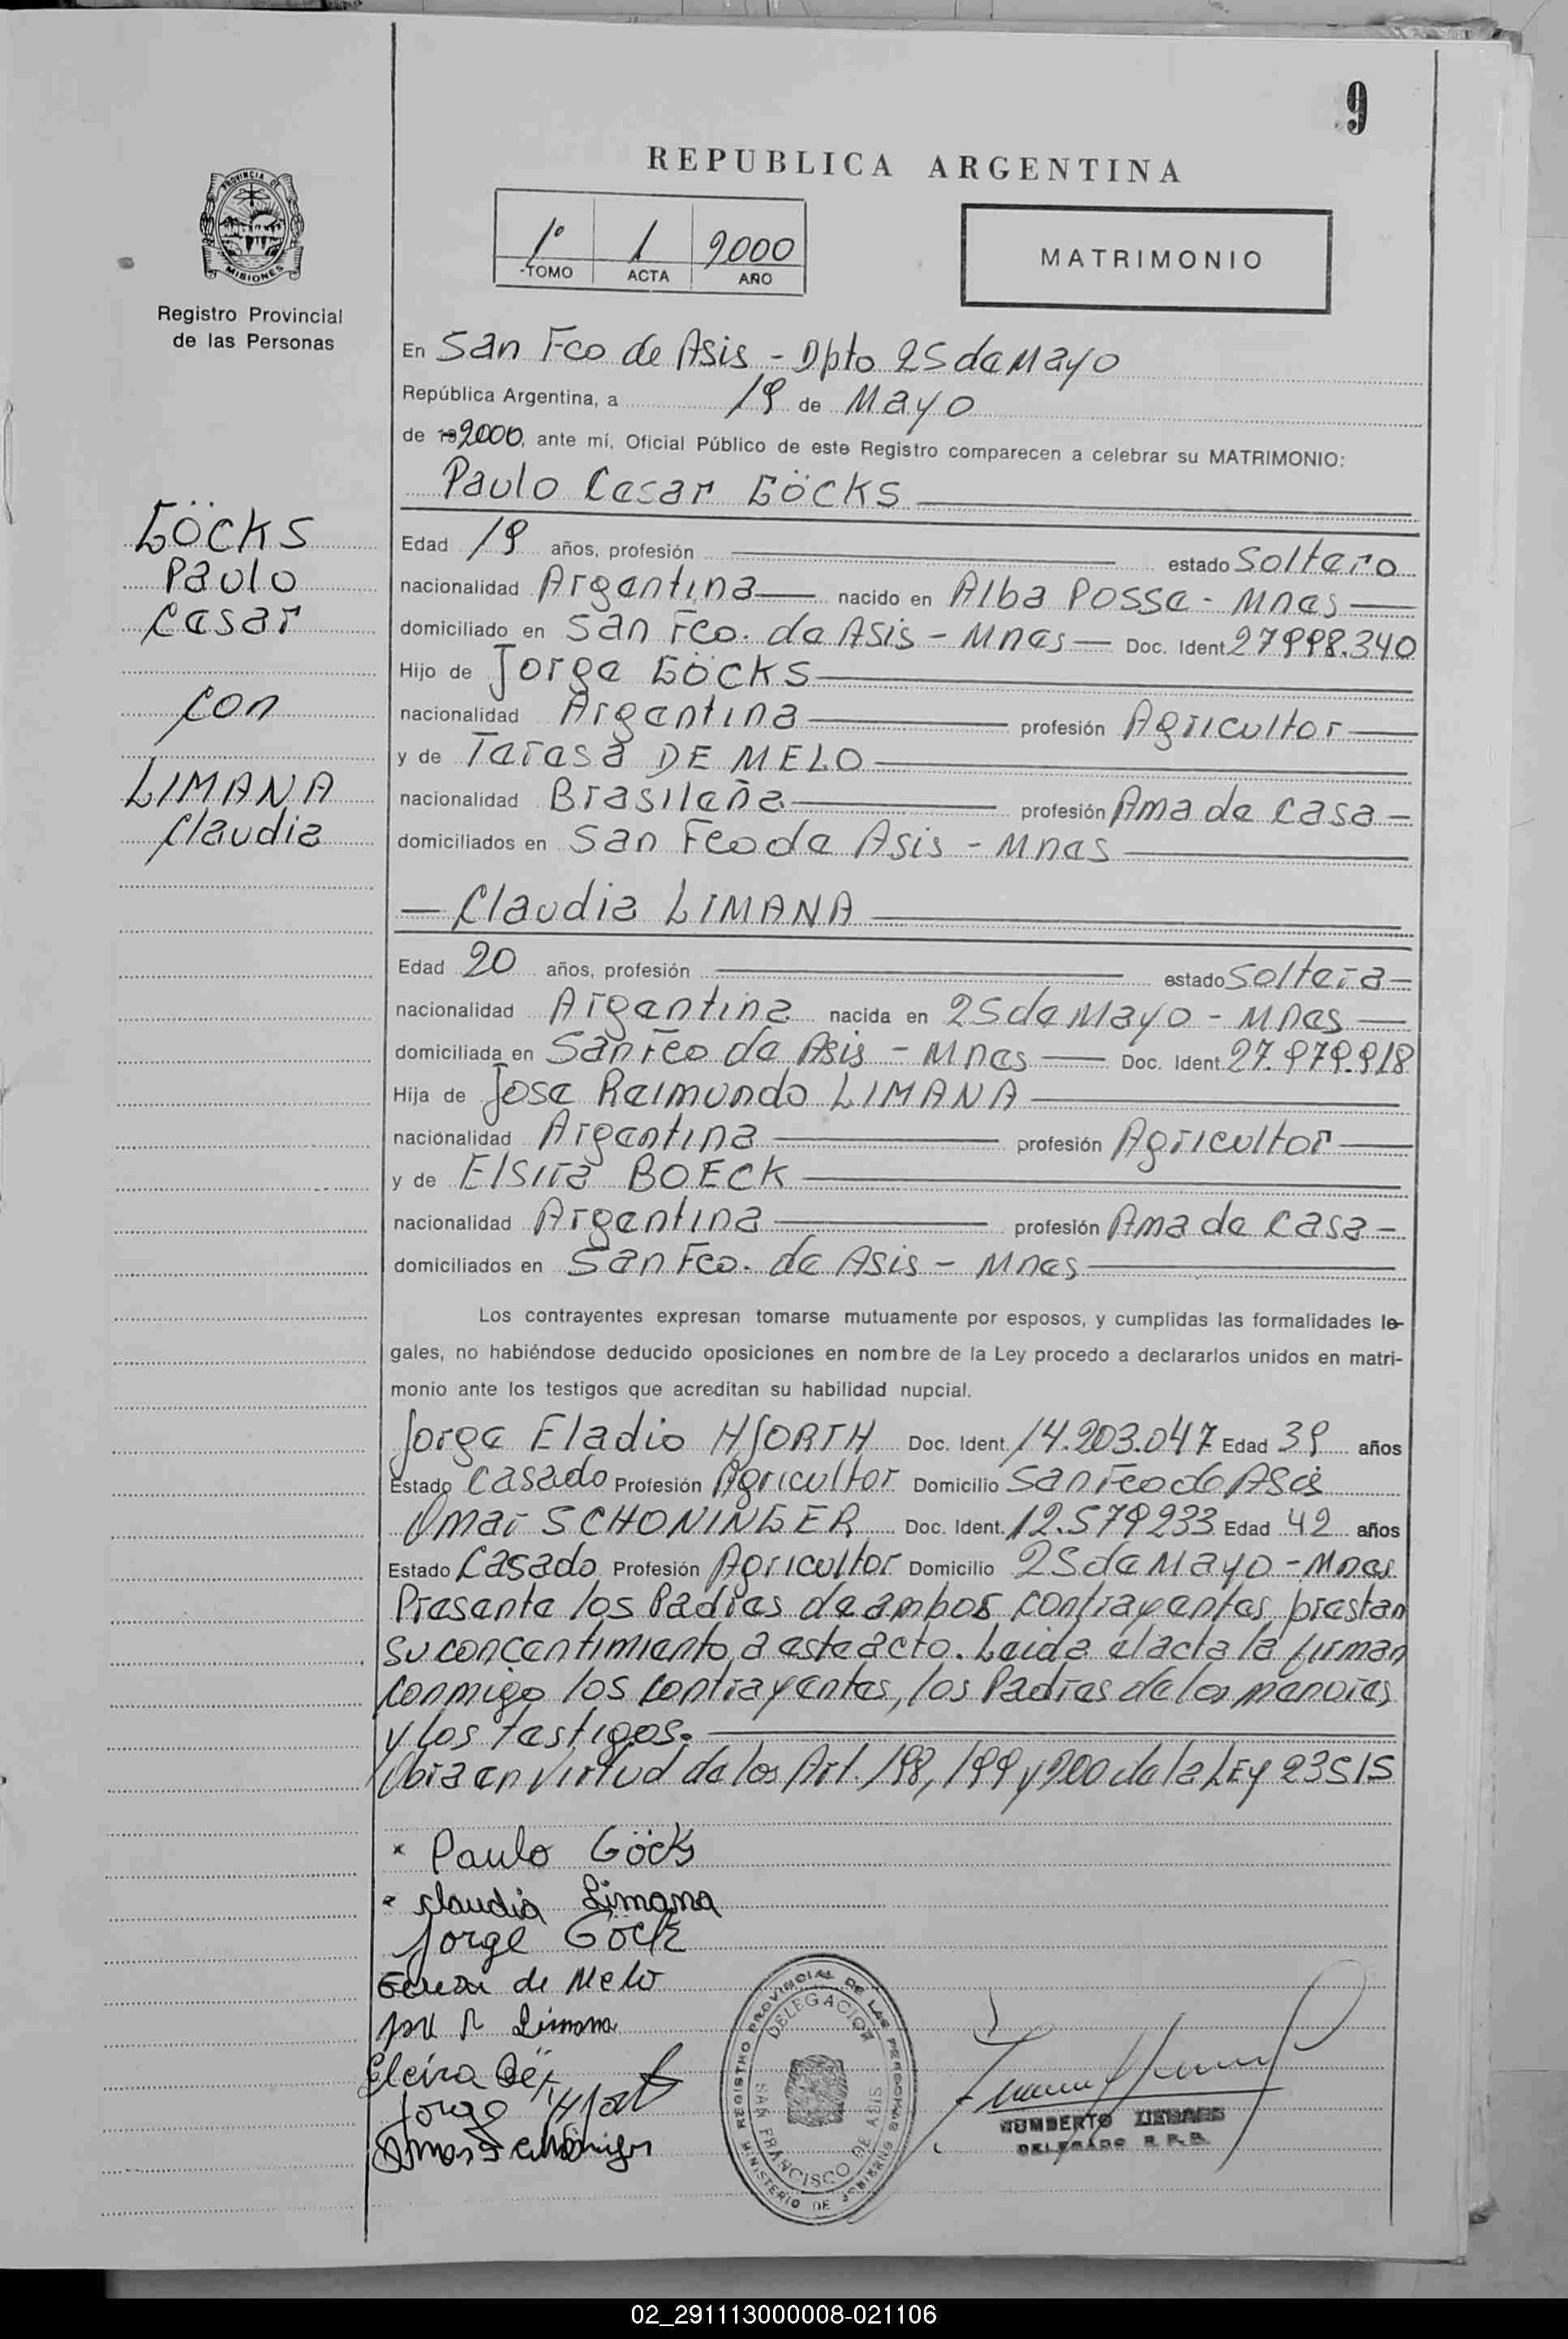 9
REPUBLICA ARGENTINA
1º 1 2000
TOMO ACTA AÑO
MATRIMONIO
PROVINCIA DE
MISIONES
Registro Provincial
de las Personas
En San Fco de Asis - Dpto 25 de Mayo
República Argentina, a 19 de Mayo
de 2000, ante mí, Oficial Público de este Registro comparecen a celebrar su MATRIMONIO:
Paulo Cesar GÖCKS
GÖCKS
Paulo
Cesar
con
LIMANA
Claudia
Edad 19 años, profesión estado Soltero
nacionalidad Argentina nacido en Alba Posse - Mnes
domiciliado en San Fco. de Asis - Mnes Doc. Ident. 27998.340
Hijo de Jorge GÖCKS
nacionalidad Argentina profesión Agricultor
y de Teresa DE MELO
nacionalidad Brasileña profesión Ama de Casa
domiciliados en San Fco de Asis - Mnes
Claudia LIMANA
Edad 20 años, profesión estado Soltera
nacionalidad Argentina nacida en 25 de Mayo - Mnes
domiciliada en San Fco de Asis - Mnes Doc. Ident. 27.979.918
Hija de Jose Reimundo LIMANA
nacionalidad Argentina profesión Agricultor
y de Elsira BOECK
nacionalidad Argentina profesión Ama de Casa
domiciliados en San Fco. de Asis - Mnes
Los contrayentes expresan tomarse mutuamente por esposos, y cumplidas las formalidades le-
gales, no habiéndose deducido oposiciones en nombre de la Ley procedo a declararlos unidos en matri-
monio ante los testigos que acreditan su habilidad nupcial.
Jorge Eladio HJORTH Doc. Ident. 14.203.047 Edad 39 años
Estado Casado Profesión Agricultor Domicilio San Fco de Asis
Omar SCHONINGER Doc. Ident. 12.579233 Edad 42 años
Estado Casado Profesión Agricultor Domicilio 25 de Mayo - Mnes
Presente los Padres de ambos contrayentes prestan
su concentimiento a este acto. Leida el acta la firman
conmigo los contrayentes, los Padres de los menores
y los testigos.
Obra en virtud de los Art. 198, 199 y 200 de la LEy 23515
Paulo Göcks
Claudia Limana
Jorge Göck
de Melo
R Limana
Jorge Hjort
REGISTRO PROVINCIAL DE LAS PERSONAS
DELEGACION
SAN FRANCISCO DE ASIS
MINISTERIO DE GOBIERNO
HUMBERTO
DELEGADO R.P.P.
02_291113000008-021106